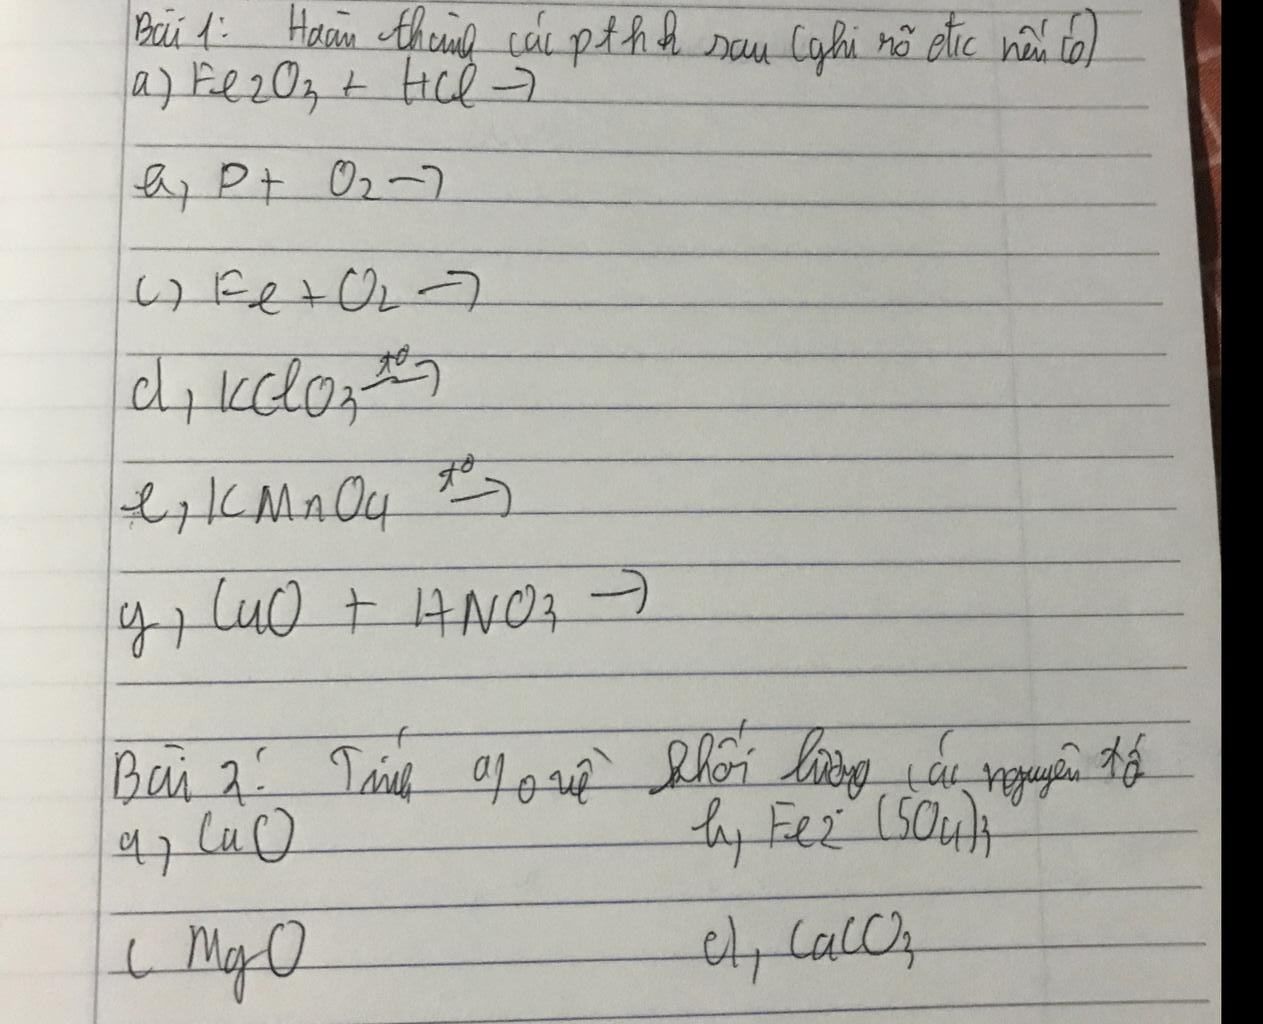 Bài 1: Hoàn thành các pthh sau (ghi rõ đk nếu có)
a) Fe2O3 + HCl →
b, P + O2 →
c) Fe + O2 →
d, KClO3 t° →
e, KMnO4 t° →
g, CuO + HNO3 →
Bài 2: Tính % về khối lượng các nguyên tố
a, CuO b, Fe2 (SO4)3
c MgO d, CaCO3